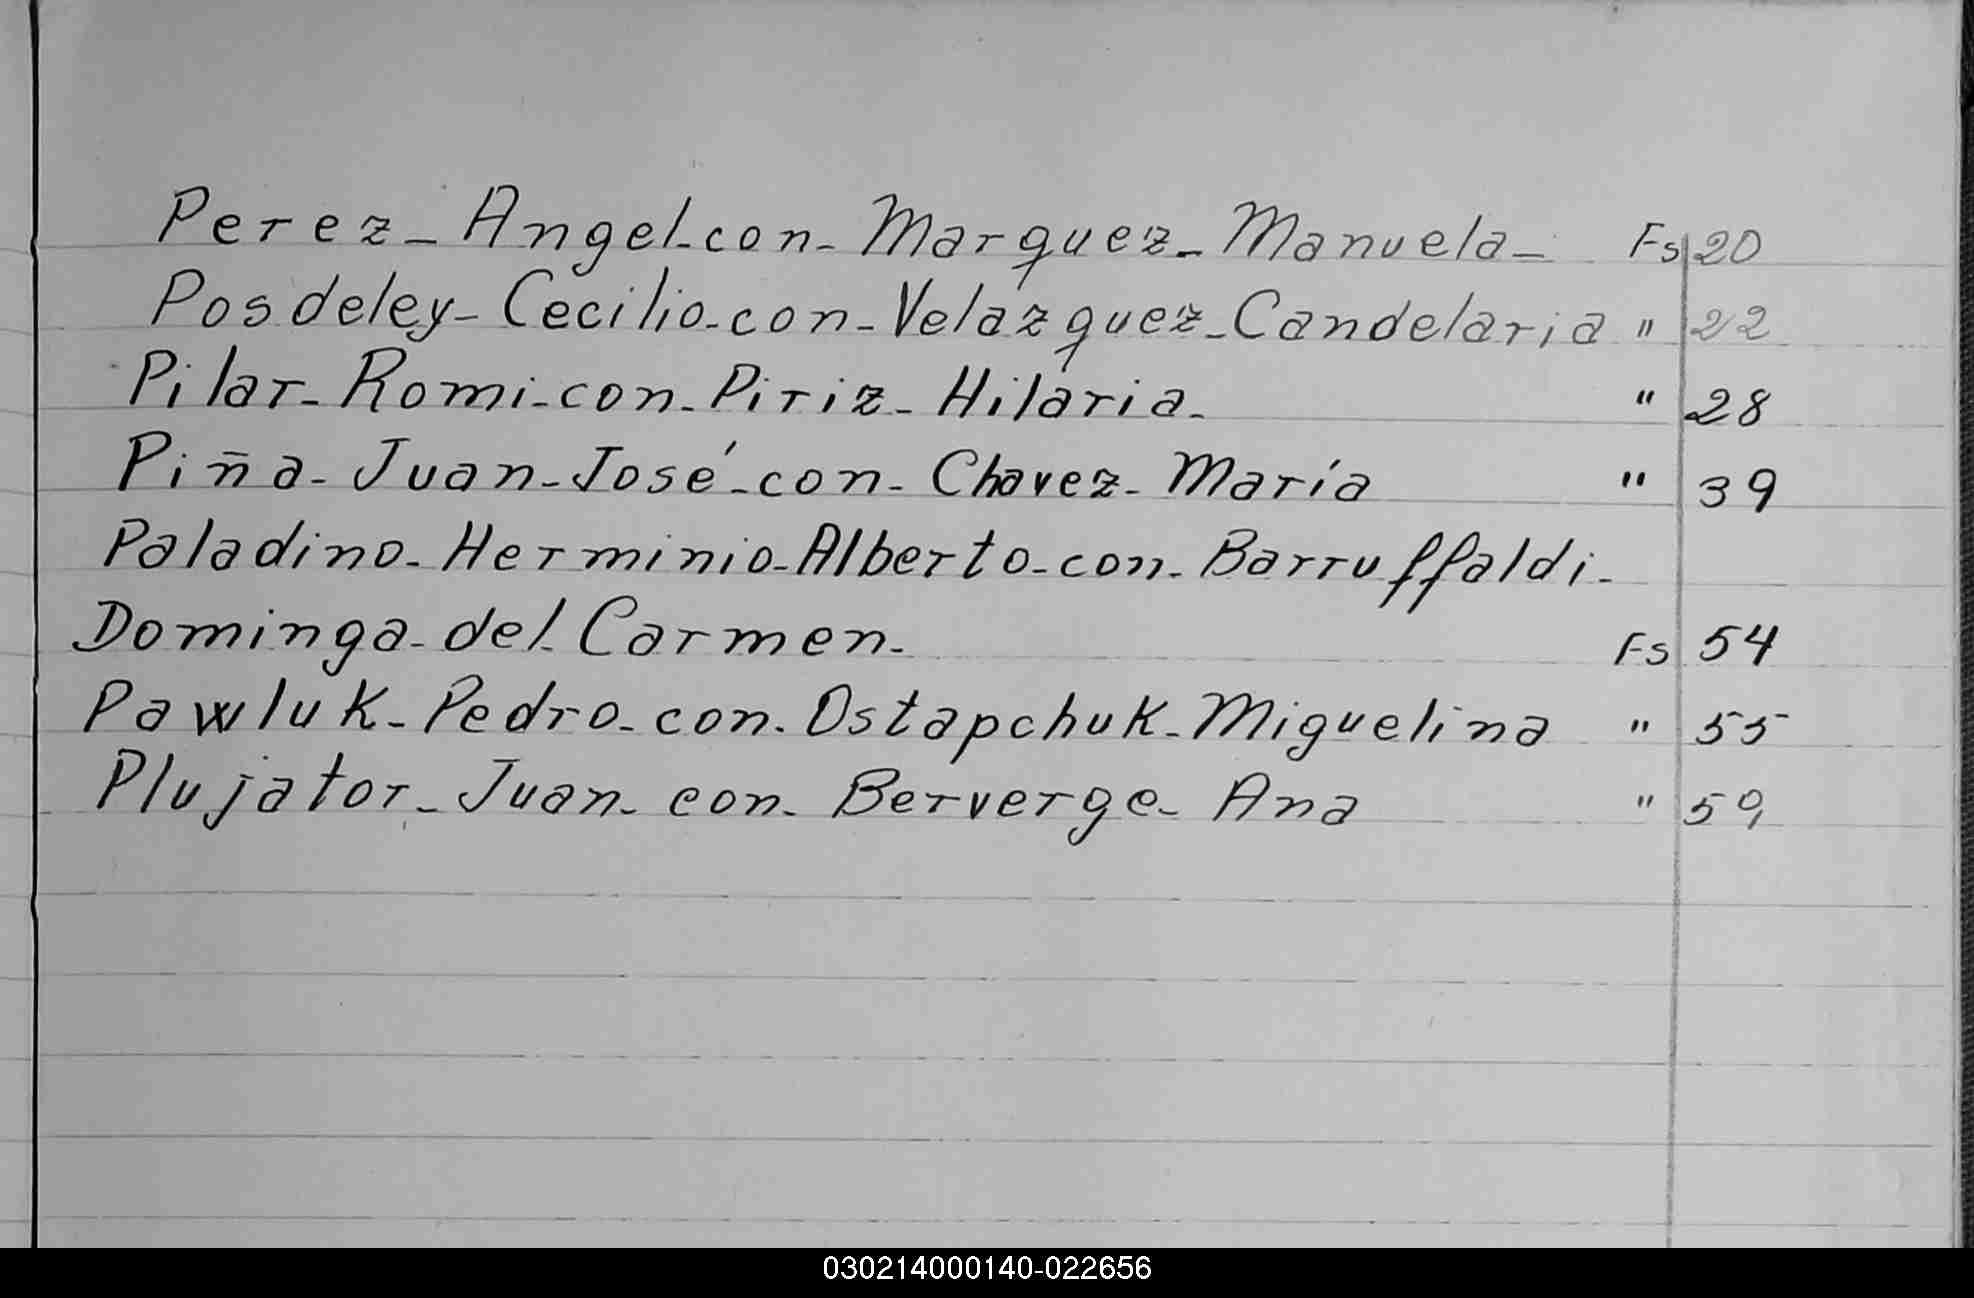 Perez_Angel_con_Marquez_Manuela_ Fs 20
Posdeley_Cecilio_con_Velázquez_Candelaria " 22
Pilar_Romi_con_Piriz_Hilaria_ " 28
Piña_Juan_José_con_Chavez_María " 39
Paladino_Herminio_Alberto_con_Barruffaldi_
Dominga_del_Carmen_ Fs 54
Pawluk_Pedro_con_Ostapchuk_Miguelina " 55
Plujator_Juan_con_Berverge_Ana " 59
030214000140-022656